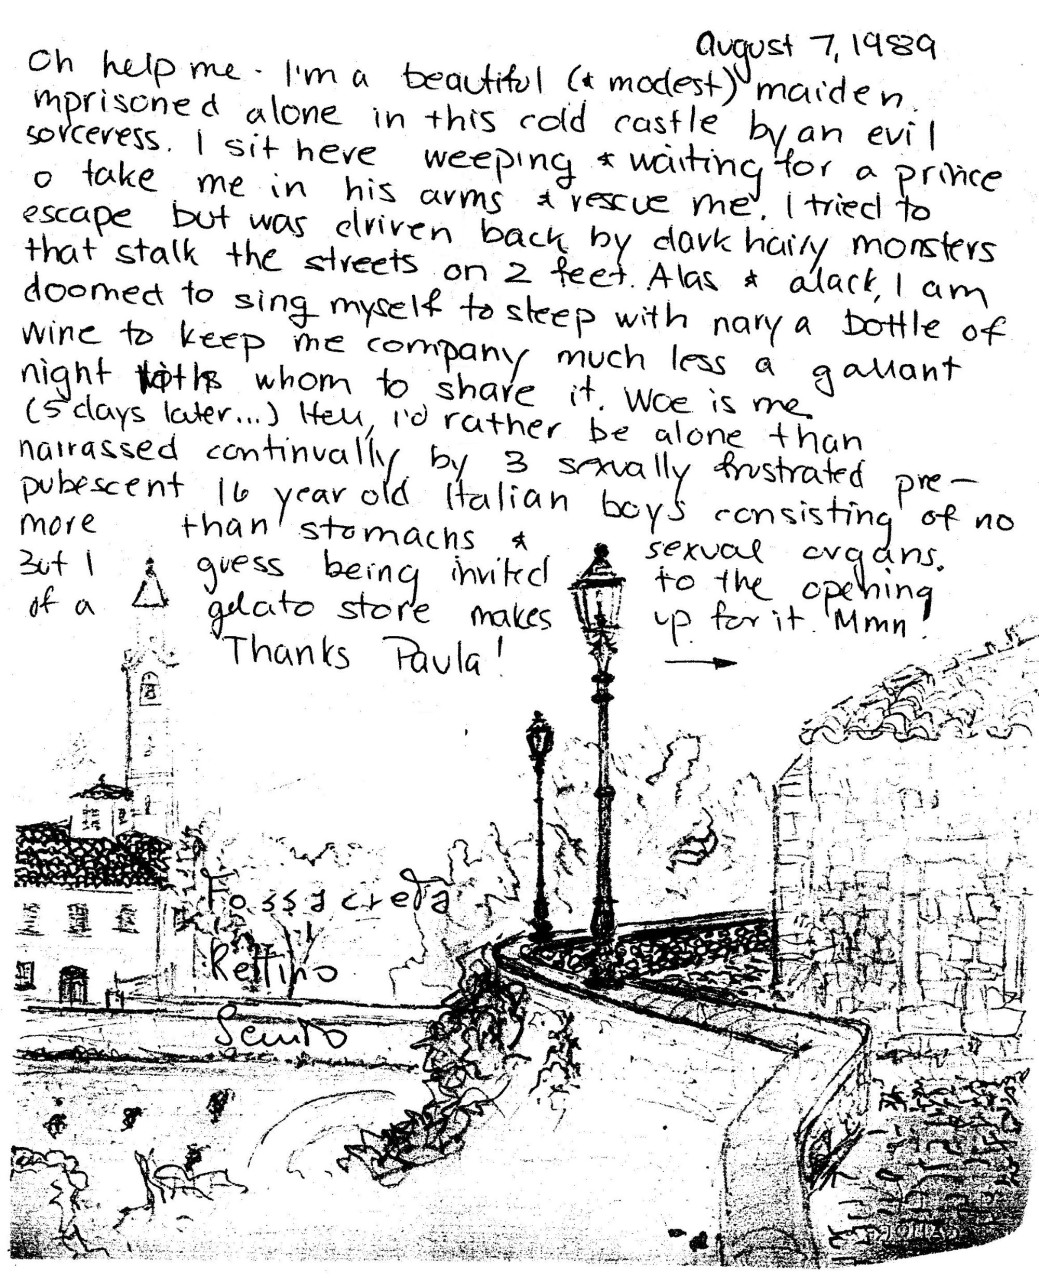 August 7, 1989
Oh help me. I'm a beautiful (& modest) maiden
mprisoned alone in this cold castle by an evil
sorceress. I sit here weeping & waiting for a prince
o take me in his arms & rescue me. I tried to
escape but was driven back by dark hairy monsters
that stalk the streets on 2 feet. Alas & alack, I am
doomed to sing myself to sleep with nary a bottle of
wine to keep me company much less a gallant
night with whom to share it. Woe is me.
(5 days later...) Hell, I'd rather be alone than
harrassed continually by 3 sexually frustrated pre-
pubescent 16 year old Italian boys consisting of no
more than stomachs & sexual organs.
But I guess being invited to the opening
of a gelato store makes up for it. Mmn!
Thanks Paula! →